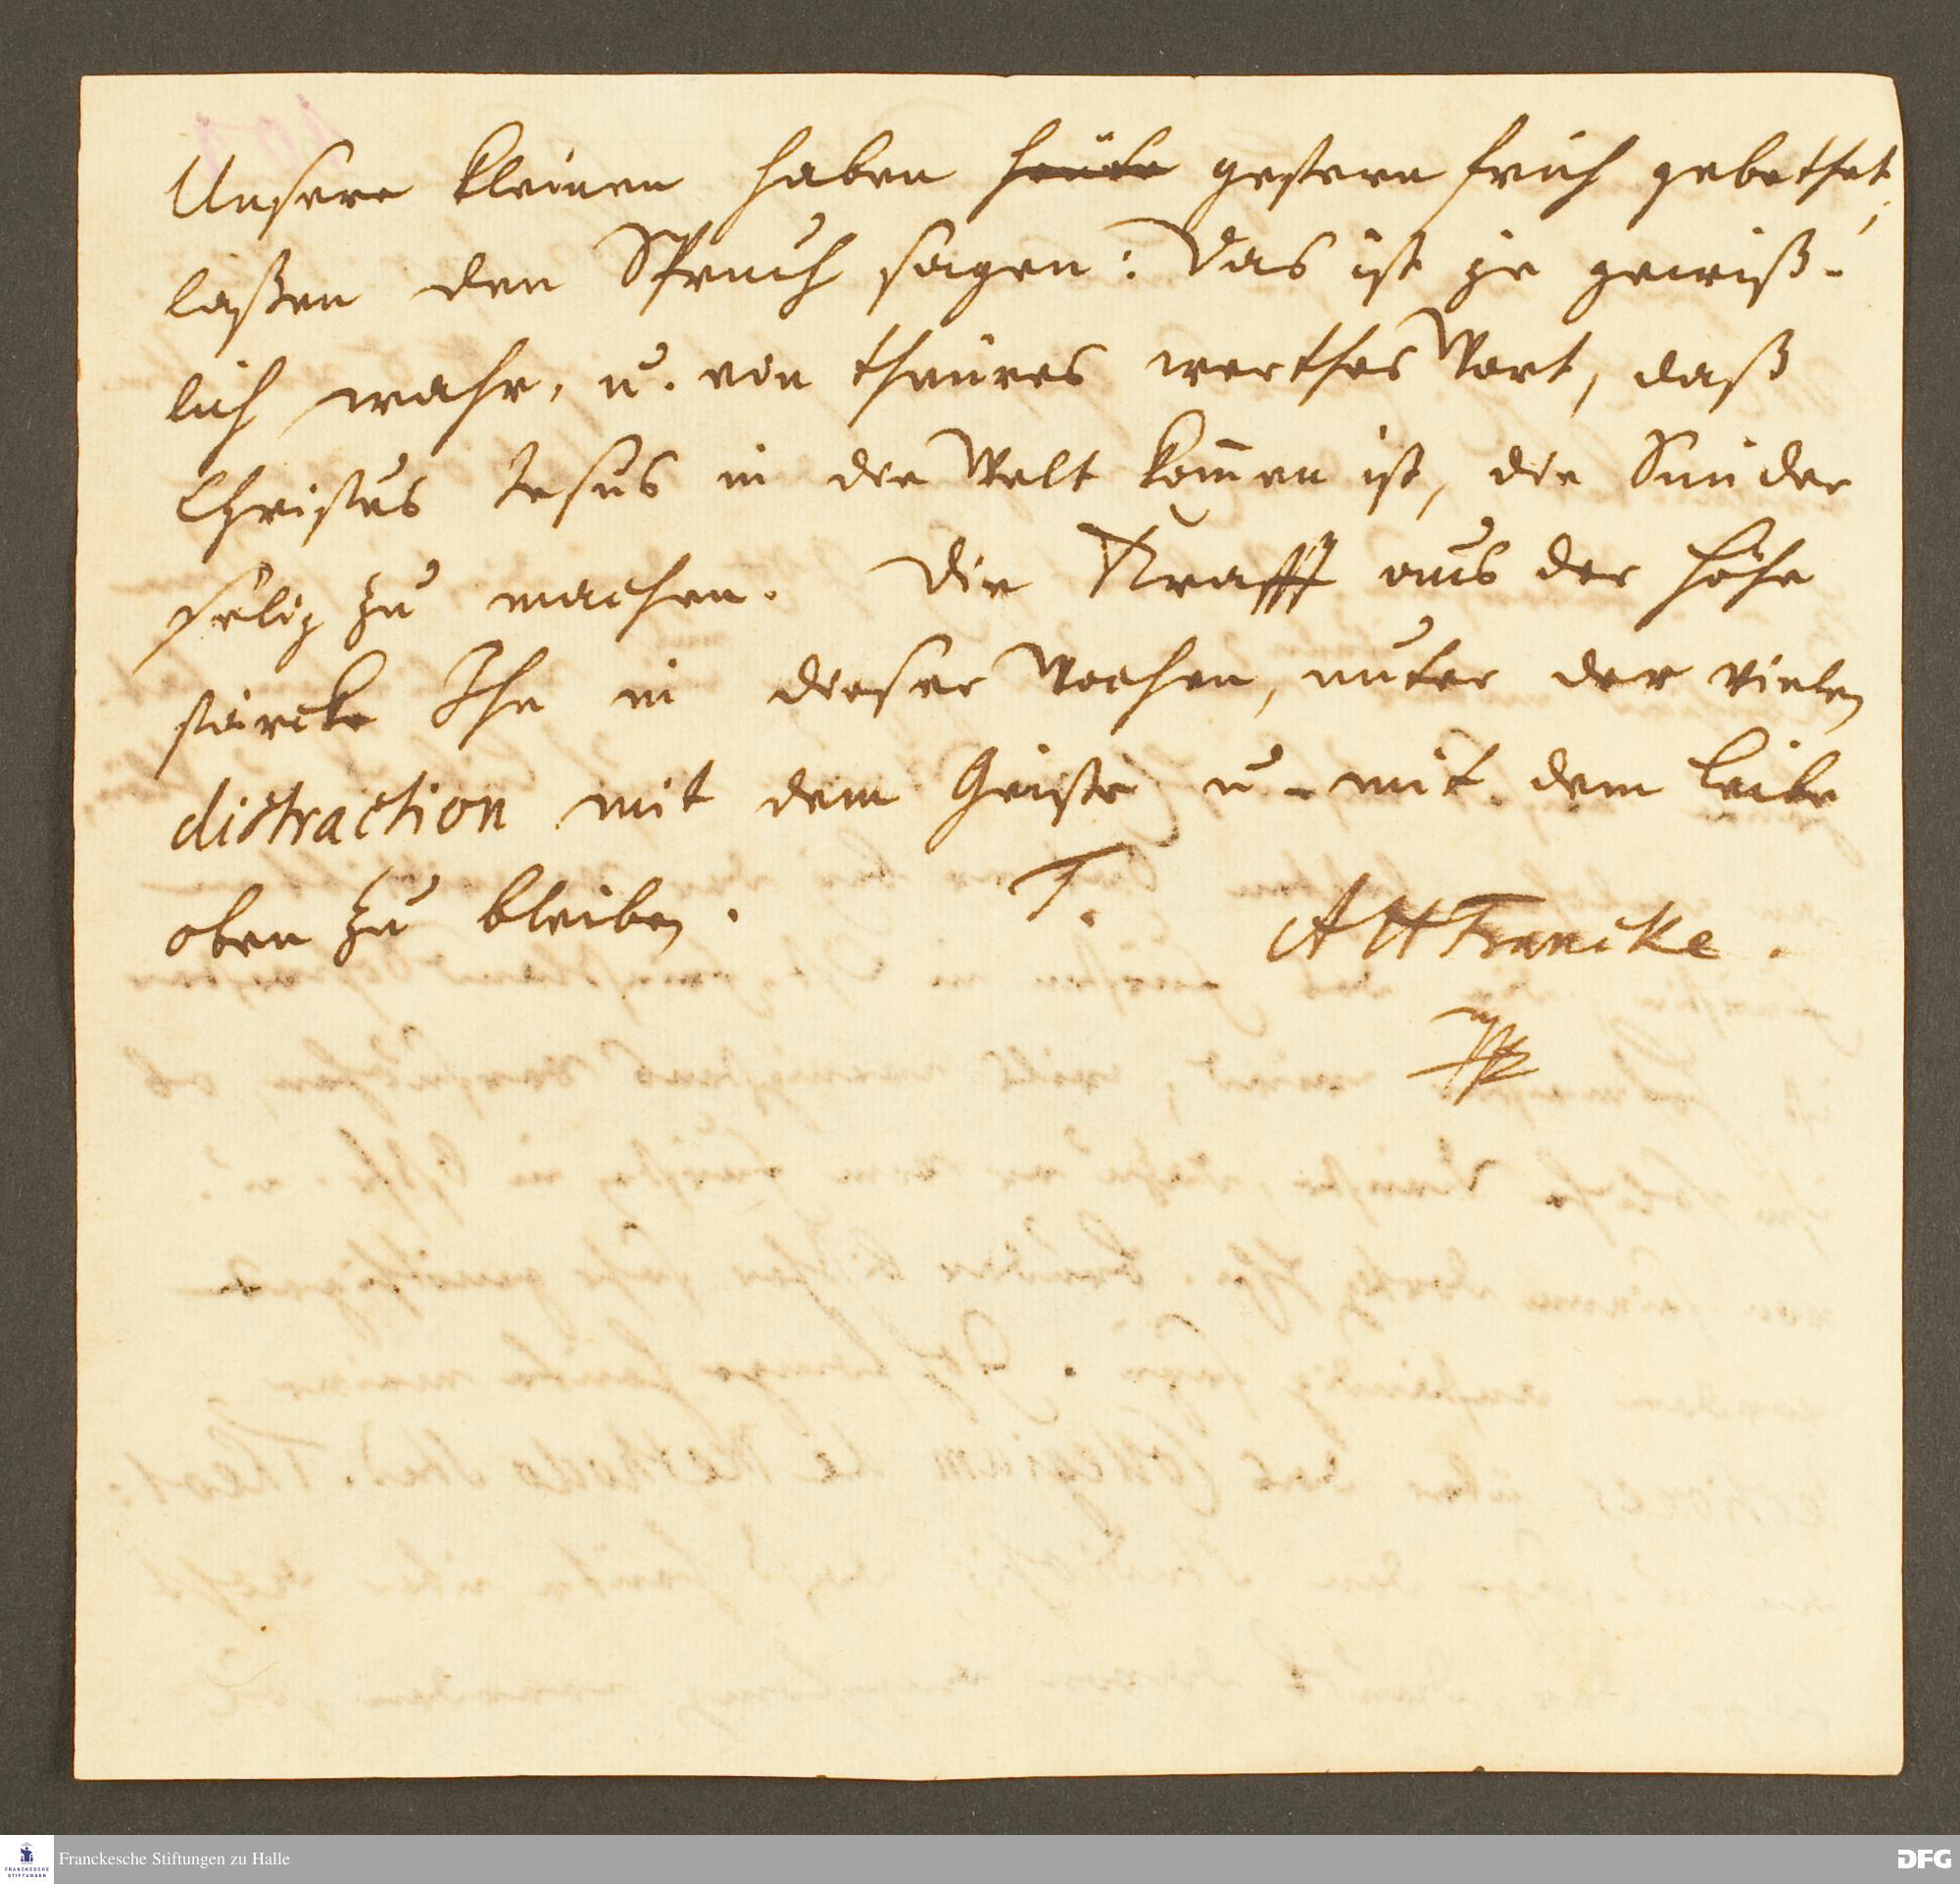 Unsere kleinen haben heüte gestern früh gebethet,
laßen den Spruch sagen: Das ist je gewiß-
lich wahr, u. ein theüres werthes Wort, daß
Christus Jesus in die Welt kom̄en ist, die Sünder
selig zu machen. Die Krafft aus der Höhe
stärcke Ihn in dieser Wochen, unter der vielen
distraction mit dem Geiste u. mit dem Leibe
oben zu bleiben. T. AHFrancke.
Franckesche Stiftungen zu Halle
FRANCKESCHE
STIFTUNGEN
DFG